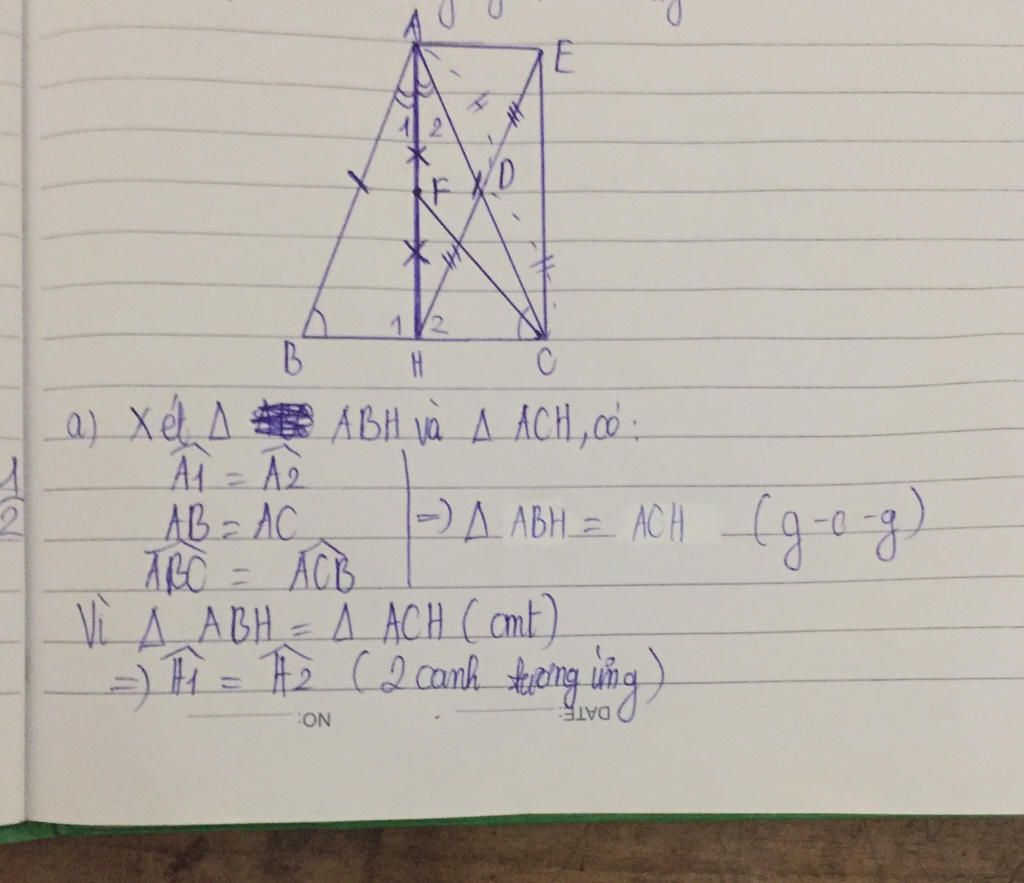 A
E
1 2
F
D
1 2
B
H
C
a) Xét Δ ABH và Δ ACH, có:
1
2
A1 = A2
AB = AC
ABC = ACB
=) Δ ABH = ACH (g-c-g)
Vì Δ ABH = Δ ACH (cmt)
=) H1 = H2 (2 canh tương ứng)
NO:
DATE: